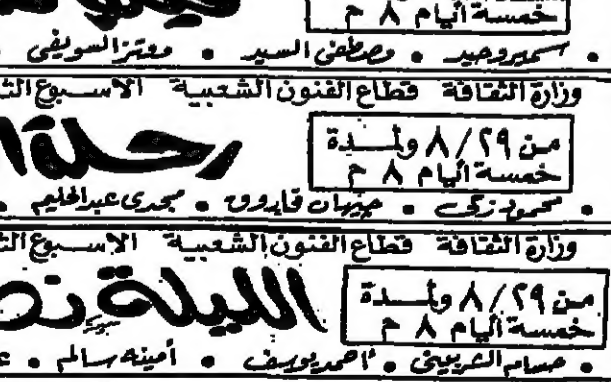 خمسة أيام ٨ م
• سمير وحيد • مصطفى السيد • معتز السويفى
وزارة الثقافة قطاع الفنون الشعبية الاسبوع
من ٢٩ / ٨ ولمدة
خمسة أيام ٨ م
رحلة
• محمود زكى • جيهان فاروق • مجدى عبدالحليم •
وزارة الثقافة قطاع الفنون الشعبية الاسبوع
من ٢٩ / ٨ ولمدة
خمسة أيام ٨ م
الليلة
• حسام الشربينى • أحمد يوسف • أمينه سالم •